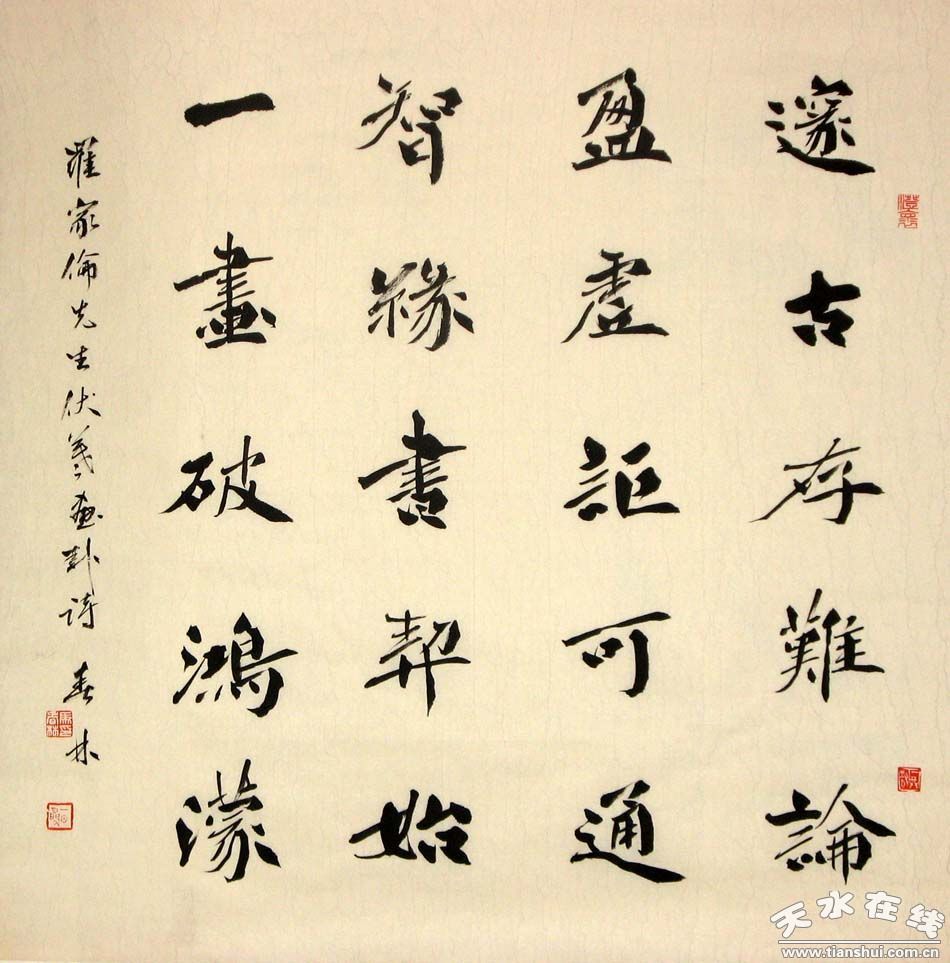 邃古存難論
盈虛詎可通
智緣書契始
一畫破鴻濛
羅家倫先生伏羲畫卦诗 春林
天水在线
www.tianshui.com.cn